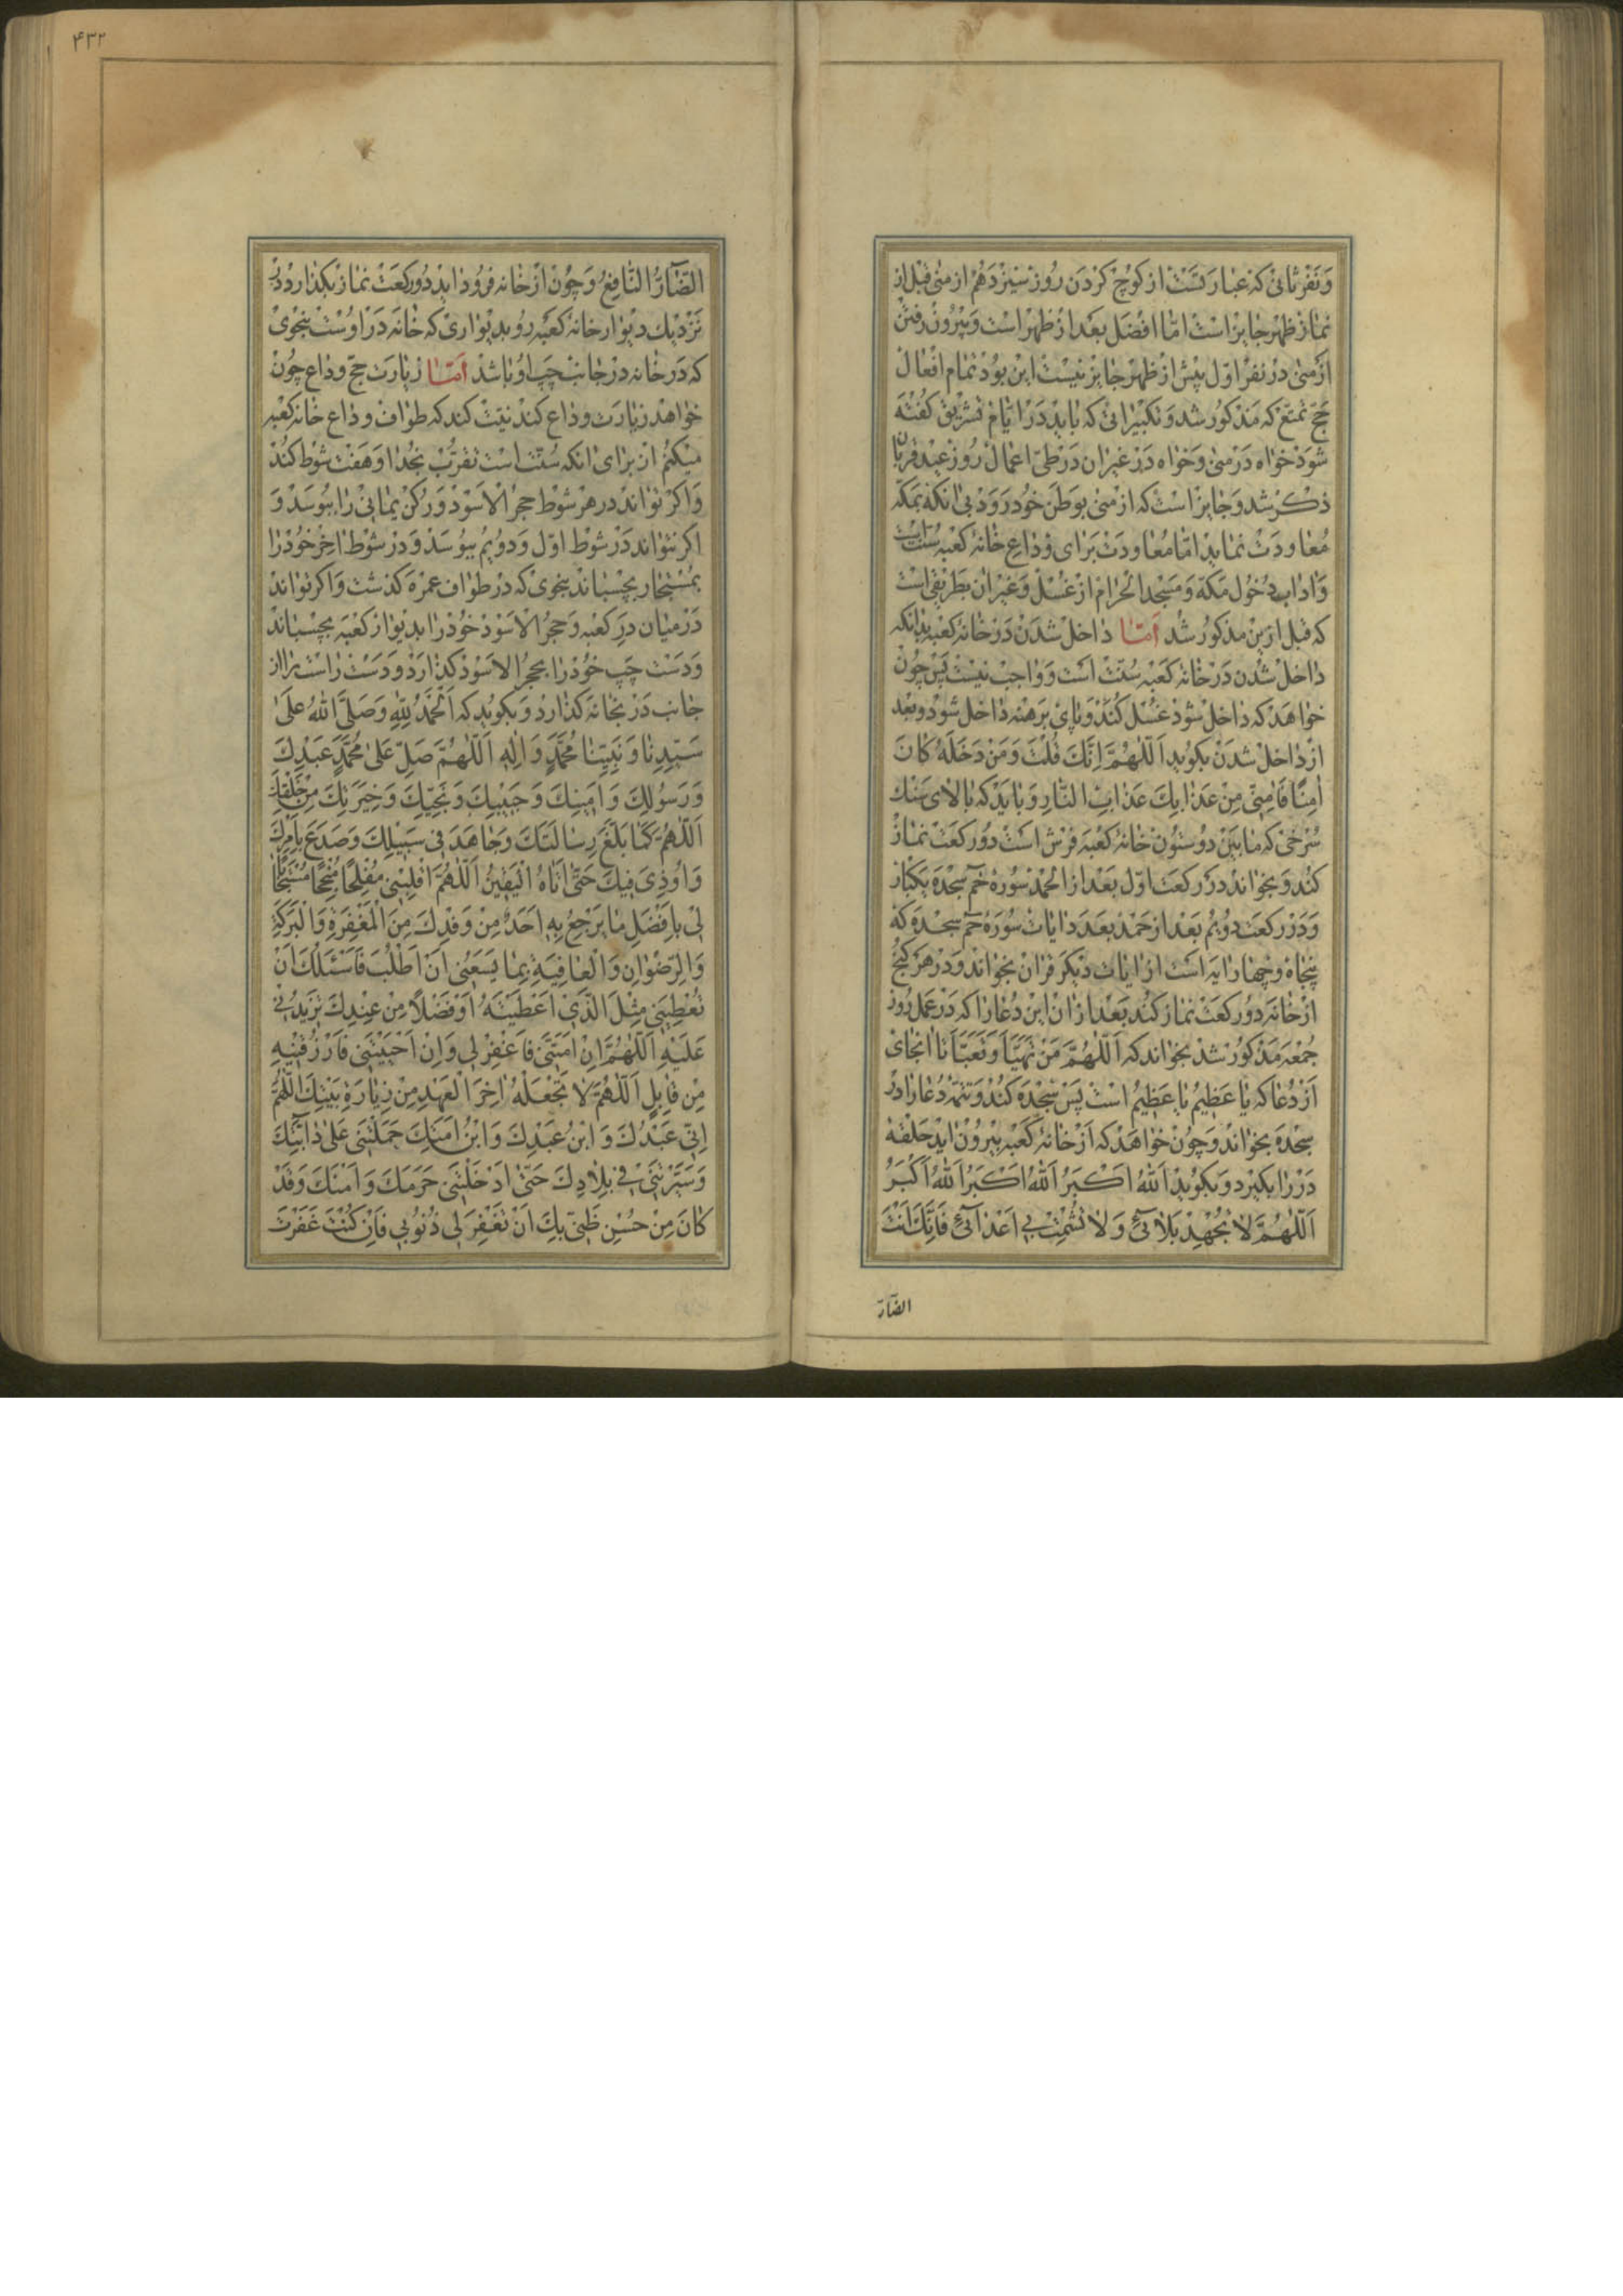 وَنَفْرِ ثانى كه عبارتست از كوچ كردن روز سيزدهم از منى قبل از
نماز ظهر جايز است امّا افضل بعد از ظهر است و بيرون رفتن
از منى در نفر اوّل پيش از ظهر جايز نيست اين بود تمام افعال
حجّ تمتّع كه مذكور شد و تكبيراتى كه بايد در ايّام تشريق گفته
شود خواه در منى و خواه در غير ان در طىّ اعمال روز عيد قربان
ذكر شد و جايز است كه از منى بوطن خود رود بى انكه بمكّه
معاودت نمايد امّا معاودت براى وداع خانهٔ كعبه سنّت است
و اداب دخول مكّه و مسجد الحرام از غسل و غير ان بطريقى است
كه قبل ازين مذكور شد امّا داخل شدن در خانهٔ كعبه بدانكه
داخل شدن در خانهٔ كعبه سنّت است و واجب نيست پس چون
خواهد كه داخل شود غسل كند و پاى برهنه داخل شود و بعد
از داخل شدن بكويد اَللّٰهُمَّ اِنَّكَ قُلْتَ وَمَنْ دَخَلَهُ كانَ
اٰمِنًا فَاٰمِنّى مِنْ عَذابِكَ عَذابِ النّارِ و بايد كه بالاى سنك
سرخى كه ما بين دو ستون خانهٔ كعبه فرش است دو ركعت نماز
كند و بخواند در ركعت اوّل بعد از الحمد سورهٔ حم سجده يكبار
و در ركعت دويم بعد از حمد بعدد ايات سورهٔ حم سجده كه
پنجاه و چهار ايه است از ايات ديكر قران بخواند و در هر كنج
از خانه دو ركعت نماز كند بعد از ان اين دعا را كه در عمل روز
جمعه مذكور شد بخواند كه اَللّٰهُمَّ مَنْ تَهَيَّأَ وَتَعَبَّأَ تا انجاى
از دعا كه يا عَظيمُ يا عَظيمُ است پس سجده كند و تتمهٔ دعا را در
سجده بخواند و چون خواهد كه از خانهٔ كعبه بيرون ايد حلقهٔ
در را بكيرد و بكويد اَللهُ اَكْبَرُ اَللهُ اَكْبَرُ اَللهُ اَكْبَرُ
اَللّٰهُمَّ لا تُجْهِدْ بَلائى وَلا تُشْمِتْ بى اَعْدائى فَاِنَّكَ اَنْتَ
الضّارّ
۴۳۲
الضّارُّ النّافِعُ و چون از خانه فرود ايد دو ركعت نماز بكذارد در
نزديك ديوار خانهٔ كعبه رو بديوارى كه خانه در اوست بنحوى
كه در خانه در جانب چپ او باشد امّا زيارت حجّ وداع چون
خواهد زيارت وداع كند نيّت كند كه طواف وداع خانه كعبه
ميكنم از براى انكه سنّت است تقرّب بخدا و هفت شوط كند
و اكر تواند در هر شوط حجر الاسود و ركن يمانى را ببوسد و
اكر نتواند در شوط اوّل و دويم ببوسد و در شوط اخر خود را
بمستجار بچسباند بنحوى كه در طواف عمره كذشت و اكر تواند
در ميان در كعبه و حجر الاسود خود را بديوار كعبه بچسباند
و دست چپ خود را بحجر الاسود كذارد و دست راست را از
جانب در بخانه كذارد و بكويد كه اَلْحَمْدُ لِلّٰهِ وَصَلَّى اللهُ عَلىٰ
سَيِّدِنا وَنَبِيِّنا مُحَمَّدٍ وَاٰلِهِ اَللّٰهُمَّ صَلِّ عَلىٰ مُحَمَّدٍ عَبْدِكَ
وَرَسُولِكَ وَاَمينِكَ وَحَبيبِكَ وَنَجِيِّكَ وَخِيَرَتِكَ مِنْ خَلْقِكَ
اَللّٰهُمَّ كَما بَلَّغَ رِسالَتَكَ وَجاهَدَ فى سَبيلِكَ وَصَدَعَ بِاَمْرِكَ
وَاُوذِىَ فيكَ حَتّىٰ اَتاهُ الْيَقينُ اَللّٰهُمَّ اقْلِبْنى مُفْلِحًا مُنْجِحًا مُسْتَجابًا
لى بِاَفْضَلِ ما يَرْجِعُ بِهِ اَحَدٌ مِنْ وَفْدِكَ مِنَ الْمَغْفِرَةِ وَالْبَرَكَةِ
وَالرِّضْوانِ وَالْعافِيَةِ بِما يَسَعُنى اَنْ اَطْلُبَ فَاَسْئَلُكَ اَنْ
تُعْطِيَنى مِثْلَ الَّذى اَعْطَيْتَهُ اَوْ فَضْلًا مِنْ عِنْدِكَ تَزيدُنى
عَلَيْهِ اَللّٰهُمَّ اِنْ اَمَتَّنى فَاغْفِرْ لى وَاِنْ اَحْيَيْتَنى فَارْزُقْنيهِ
مِنْ قابِلٍ اَللّٰهُمَّ لا تَجْعَلْهُ اٰخِرَ الْعَهْدِ مِنْ زِيارَةِ بَيْتِكَ اَللّٰهُمَّ
اِنّى عَبْدُكَ وَابْنُ عَبْدِكَ وَابْنُ اَمَتِكَ حَمَلْتَنى عَلىٰ دابَّتِكَ
وَسَيَّرْتَنى فى بِلادِكَ حَتّىٰ اَدْخَلْتَنى حَرَمَكَ وَاَمْنَكَ وَقَدْ
كانَ مِنْ حُسْنِ ظَنّى بِكَ اَنْ تَغْفِرَ لى ذُنُوبى فَاِنْ كُنْتَ غَفَرْتَ